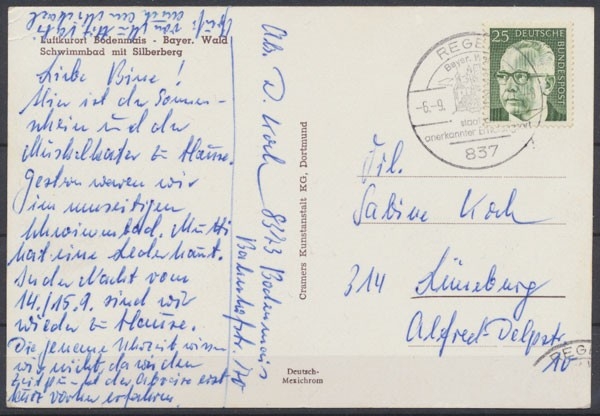 Luftkurort Bodenmais - Bayer. Wald
Schwimmbad mit Silberberg
Liebe Bine!
Hier ist der Sonnen-
schein und der
Muskelkater zu Hause.
Gestern waren wir
im umseitigen
Schwimmbad. Mutti
hat eine Lederhaut.
In der Nacht vom
14./15.9. sind wir
wieder zu Hause.
Die genaue Uhrzeit wissen
wir nicht, da wir den
Zeitpunkt der Abreise erst
kurz vorher erfahren.
Abs. D. Koch 8373 Bodenmais
Bahnhofstr. 10
Cramers Kunstanstalt KG, Dortmund
Deutsch-
Mexichrom
REGE
Bayer. W
-6.-9.
staatl
anerkannter
837
25 DEUTSCHE
BUNDESPOST
Sabine Koch
314 Lüneburg
10
REGE